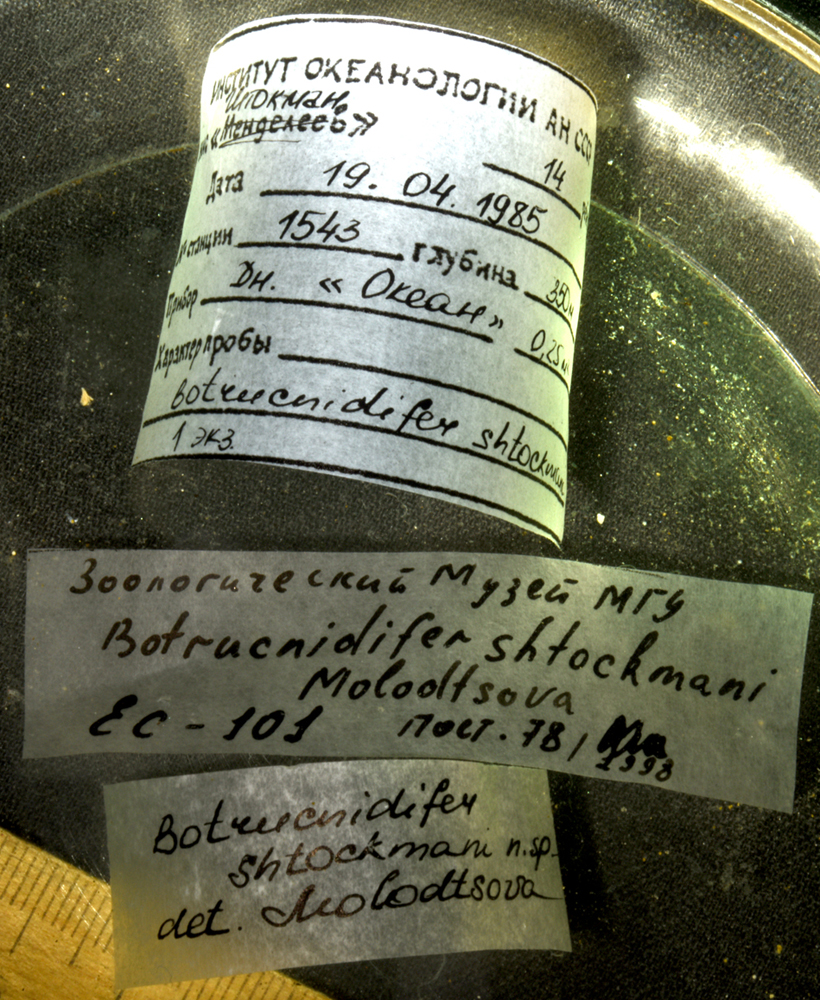 ИНСТИТУТ ОКЕАНОЛОГИИ АН СССР
Штокман
«Менделеев» 14
Дата 19. 04. 1985
№ станции 1543 глубина 350 м
Прибор Дн. «Океан» 0,25 м
Характер пробы
Botrucnidifer shtockmani
1 экз.
Зоологический Музей МГУ
Botrucnidifer shtockmani
Molodtsova
Ec-101 Пост. 78/
1998
Botrucnidifer
shtockmani n.sp.
det. Molodtsova